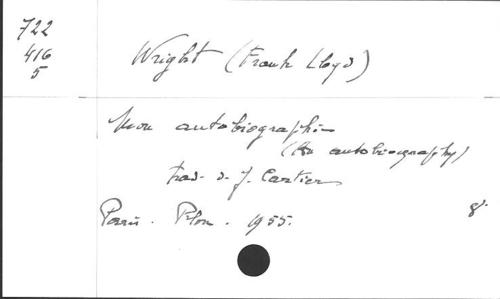 722
416
5
Wright (Frank Lloyd)
Mon autobiographie
(An autobiography)
trad. d. J. Cartier
Paris. Plon. 1955.
8°